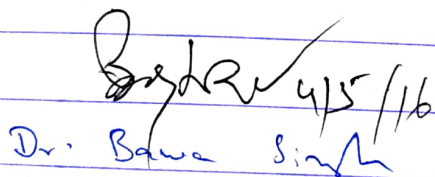 4/5/16
Dr. Bawa Singh